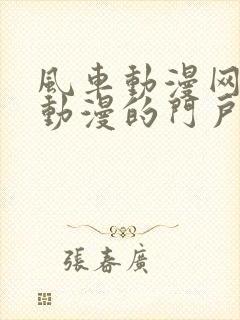 風車動漫网
動漫的門戶
張春廣